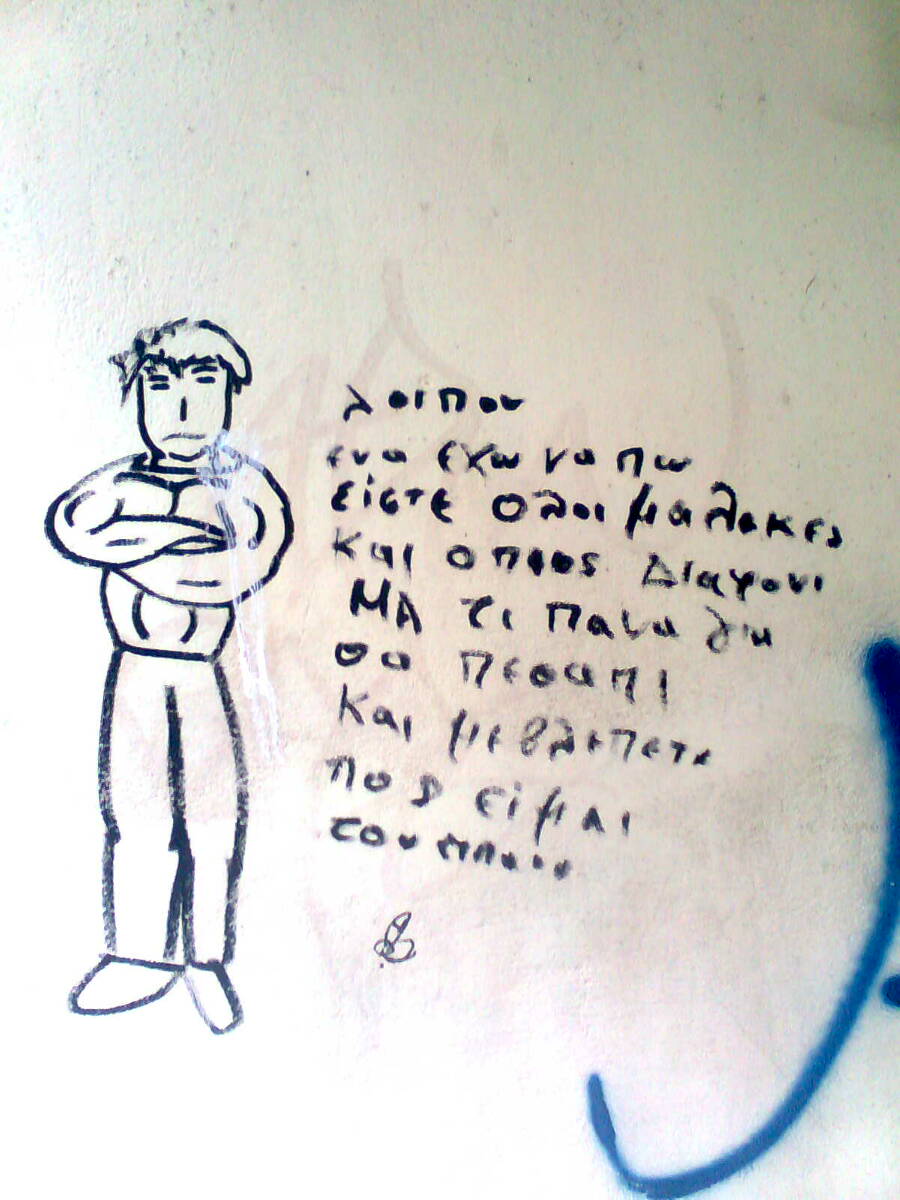 λοιπον
ενα εχω να πω
είστε ολοι μαλακες
και οποιος Διαφονι
ΜΑ τι Παναγια
θα πεσαπι
και με βλεπετε
που είμαι